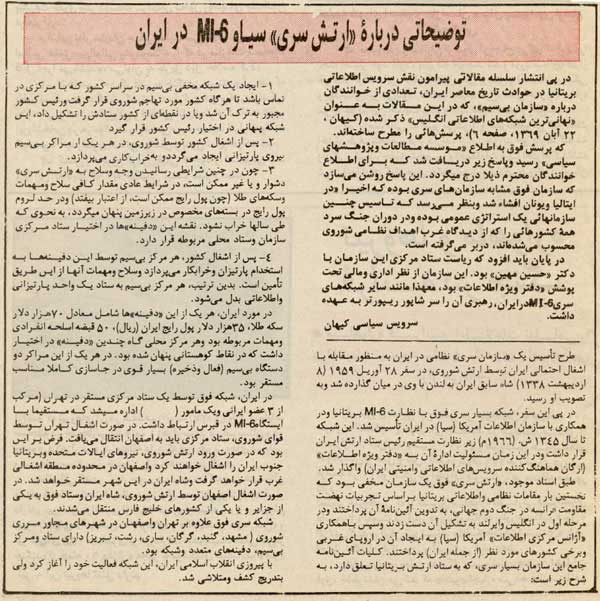 توضیحاتی دربارهٔ «ارتش سری» سیا و MI-6 در ایران
در پی انتشار سلسله مقالاتی پیرامون نقش سرویس اطلاعاتی
بریتانیا در حوادث تاریخ معاصر ایران، تعدادی از خوانندگان
درباره «سازمان بی‌سیم»، که در این مقالات به عنوان
«نهانی‌ترین شبکه‌های اطلاعاتی انگلیس» ذکر شده (کیهان،
۲۲ آبان ۱۳۶۹، صفحه ۶)، پرسش‌هائی را مطرح ساخته‌اند.
که پرسش فوق به اطلاع «موسسه مطالعات و پژوهشهای
سیاسی» رسید و پاسخ زیر دریافت شد که برای اطلاع
خوانندگان محترم ذیلا درج میگردد. این پاسخ روشن می‌سازد
که سازمان فوق مشابه سازمان‌های سری بوده که اخیرا در
ایتالیا و یونان افشاء شد و بنظر می‌رسد که تاسیس چنین
سازمانهائی یک استراتژی عمومی بوده و در دوران جنگ سرد
همهٔ کشورهائی را که از دیدگاه غرب اهداف نظامی شوروی
محسوب می‌شده‌اند، دربر می‌گرفته است.
در پایان باید افزود که ریاست ستاد مرکزی این سازمان با
دکتر «حسین مهین» بود. این سازمان از نظر اداری و مالی تحت
پوشش «دفتر ویژه اطلاعات» بود، معهذا مانند سایر شبکه‌های
سری MI-6 در ایران، رهبری آن را سر شاپور ریپورتر به عهده
داشت.
سرویس سیاسی کیهان
طرح تأسیس یک «سازمان سری» نظامی در ایران به منظور مقابله با
اشغال احتمالی ایران توسط ارتش شوروی، در سفر ۲۸ آوریل ۱۹۵۹ (۸
اردیبهشت ۱۳۳۸) شاه سابق ایران به لندن با وی در میان گذارده شد و به
تصویب او رسید.
در پی این سفر، شبکه بسیار سری فوق با نظارت MI-6 بریتانیا و در
همکاری با سازمان اطلاعات آمریکا (سیا) در ایران تأسیس شد. این شبکه
تا سال ۱۳۴۵ ش. (۱۹۶۶م) زیر نظارت مستقیم رئیس ستاد ارتش ایران
قرار داشت و در این زمان مسئولیت ادارهٔ آن به «دفتر ویژه اطلاعات»
(ارگان هماهنگ‌کننده سرویس‌های اطلاعاتی و امنیتی ایران) واگذار شد.
طبق اسناد موجود، «ارتش سری» فوق یک سازمان مخفی بود که
نخستین بار مقامات نظامی و اطلاعاتی بریتانیا براساس تجربیات نهضت
مقاومت فرانسه در جنگ دوم جهانی، به تدوین آئین‌نامهٔ آن پرداختند و در
مرحله اول در انگلیس و ایرلند به تشکیل آن دست زدند و سپس با همکاری
«آژانس مرکزی اطلاعات» آمریکا (سیا) به ایجاد آن در اروپای غربی
و برخی کشورهای مورد نظر (از جمله ایران) پرداختند. کلیات آئین‌نامه
جامع این سازمان بسیار سری، که به ستاد ارتش بریتانیا تعلق دارد، به
شرح زیر است:
۱- ایجاد یک شبکه مخفی بی‌سیم در سراسر کشور که با مرکزی در
تماس باشد تا هرگاه کشور مورد تهاجم شوروی قرار گرفت و رئیس کشور
مجبور به ترک آن شد و یا در نقطه‌ای از کشور ستادش را تشکیل داد، این
شبکه پنهانی در اختیار رئیس کشور قرار گیرد
۲- پس از اشغال کشور توسط شوروی، در هر یک از مراکز بی‌سیم
نیروی پارتیزانی ایجاد می‌گردد و به خرابکاری می‌پردازد.
۳- چون در چنین شرایطی رسانیدن وجه و سلاح به «ارتش سری»
دشوار و یا غیر ممکن است، در شرایط عادی مقدار کافی سلاح و مهمات
و سکه‌های طلا (چون پول رایج ممکن است، از اعتبار بیفتد) و در حد لزوم
پول رایج در بسته‌های مخصوص در زیرزمین پنهان میگردد، به نحوی که
طی سالها خراب نشود. نقشه این «دفینه‌ها» در اختیار ستاد مرکزی
سازمان و ستاد محلی مربوطه قرار دارد.
۴- پس از اشغال کشور، هر مرکز بی‌سیم توسط این دفینه‌ها به
استخدام پارتیزان و خرابکار می‌پردازد و سلاح و مهمات آنها از این طریق
تأمین است. بدین ترتیب، هر مرکز بی‌سیم به ستاد یک واحد پارتیزانی
و اطلاعاتی بدل می‌شود.
در مورد ایران، هر یک از این «دفینه»ها شامل معادل ۷۰هزار دلار
سکه طلا، ۳۵هزار دلار پول رایج ایران (ریال)، ۵۰ قبضه اسلحه انفرادی
و مهمات مربوطه بود و هر مرکز محلی گاه چندین «دفینه» در اختیار
داشت که در نقاط کوهستانی پنهان شده بود. در هر یک از این مراکز دو
دستگاه بی‌سیم (فعال و ذخیره) بسیار قوی در جاسازی کاملا مناسب
مستقر بود.
در ایران، شبکه فوق توسط یک ستاد مرکزی مستقر در تهران (مرکب
از ۳ عضو ایرانی و یک مامور (        ) اداره میشد که مستقیما با
ایستگاه MI-6 در قبرس ارتباط داشت. در صورت اشغال تهران توسط
قوای شوروی، ستاد مرکزی باید به اصفهان انتقال می‌یافت. فرض بر این
بود که در صورت ورود ارتش شوروی، نیروهای ایالات متحده و بریتانیا
جنوب ایران را اشغال خواهند کرد و اصفهان در محدوده منطقه اشغالی
غرب قرار خواهد گرفت و شاه ایران در این شهر مستقر خواهد شد. در
صورت اشغال اصفهان توسط ارتش شوروی، شاه ایران و ستاد فوق به یکی
از جزایر و یا یکی از کشورهای خلیج فارس منتقل می‌شدند.
شبکه سری فوق علاوه بر تهران و اصفهان در شهرهای مجاور مرزی
شوروی (مشهد، گنبد، گرگان، ساری، رشت، تبریز) دارای ستاد و مرکز
بی‌سیم، دفینه‌های متعدد و شبکه بود.
با پیروزی انقلاب اسلامی ایران، این شبکه فعالیت خود را آغاز کرد ولی
بتدریج کشف و متلاشی شد.